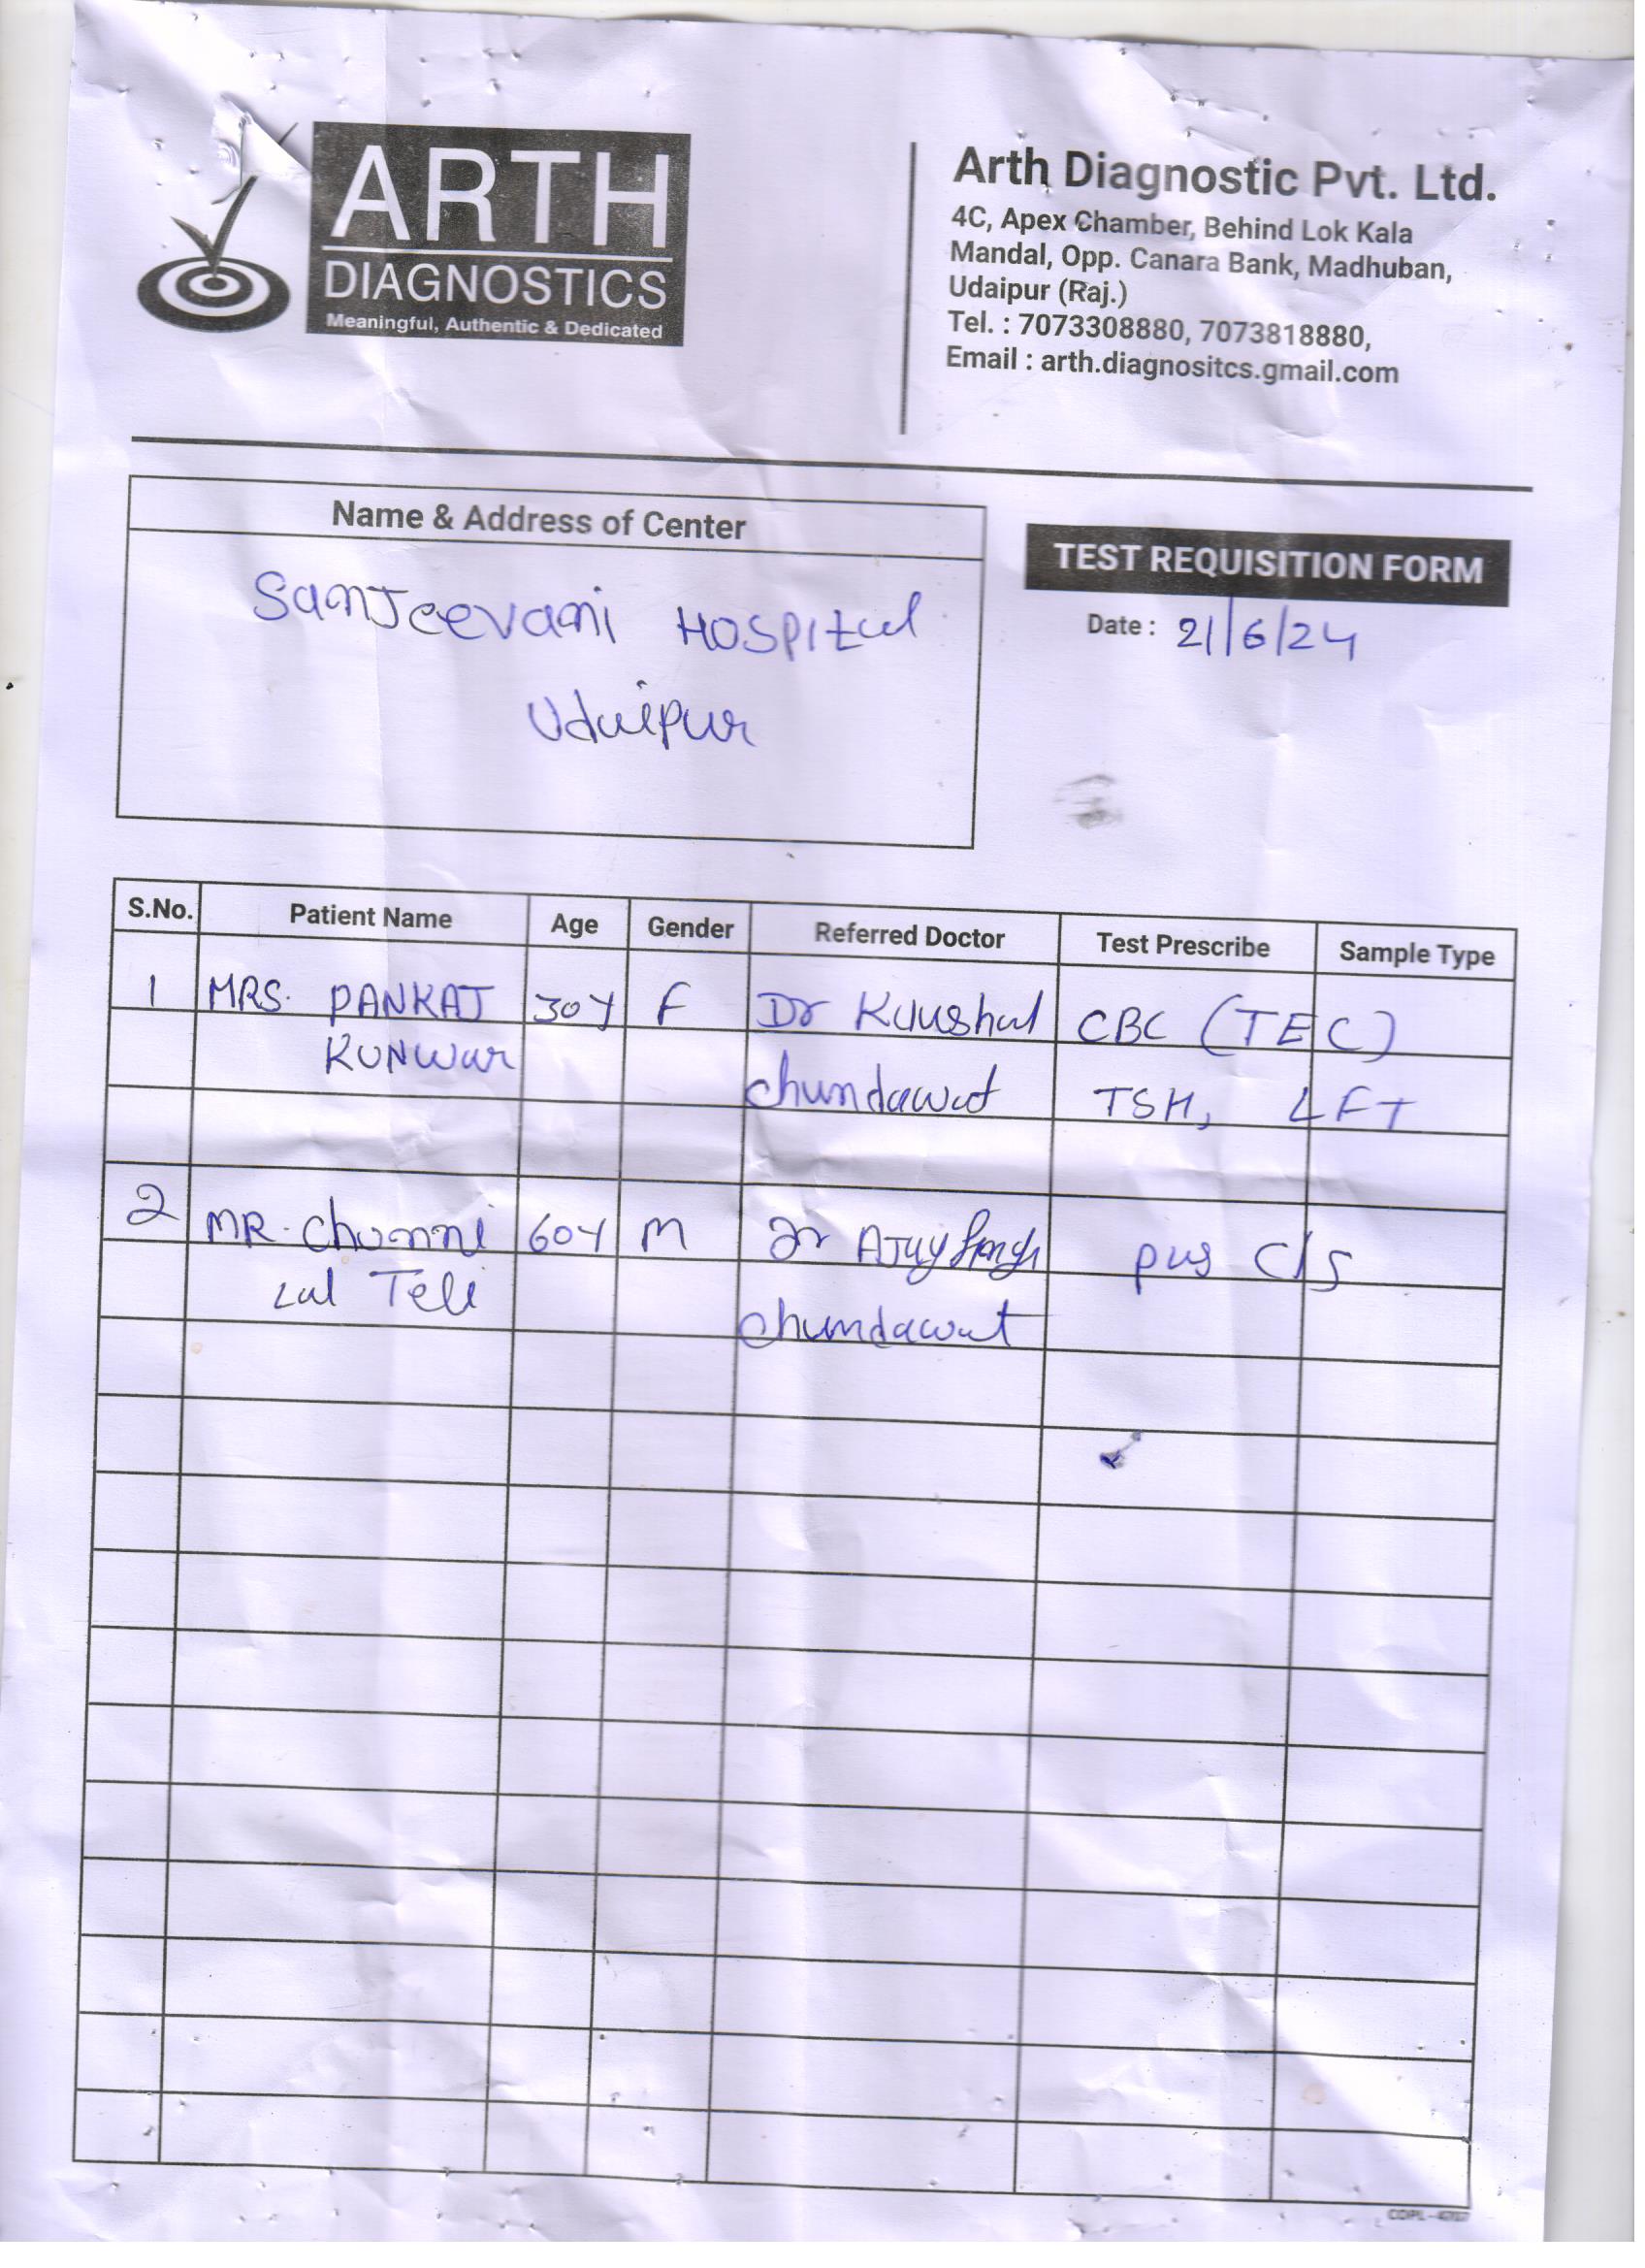 ARTH
DIAGNOSTICS
Meaningful, Authentic & Dedicated
Arth Diagnostic Pvt. Ltd.
4C, Apex Chamber, Behind Lok Kala
Mandal, Opp. Canara Bank, Madhuban,
Udaipur (Raj.)
Tel. : 7073308880, 7073818880,
Email : arth.diagnositcs.gmail.com
Name & Address of Center
SanJeevani HOSPITal
Udaipur
TEST REQUISITION FORM
Date : 21/6/24
S.No. Patient Name Age Gender Referred Doctor Test Prescribe Sample Type
1 MRS. PANKAJ 30Y F Dr Kaushal CBC (TEC)
KUNWar chundawat TSH, LFT
2 MR. Chunni 60Y M Dr AJay Singh pus C/S
Lal Teli chundawat